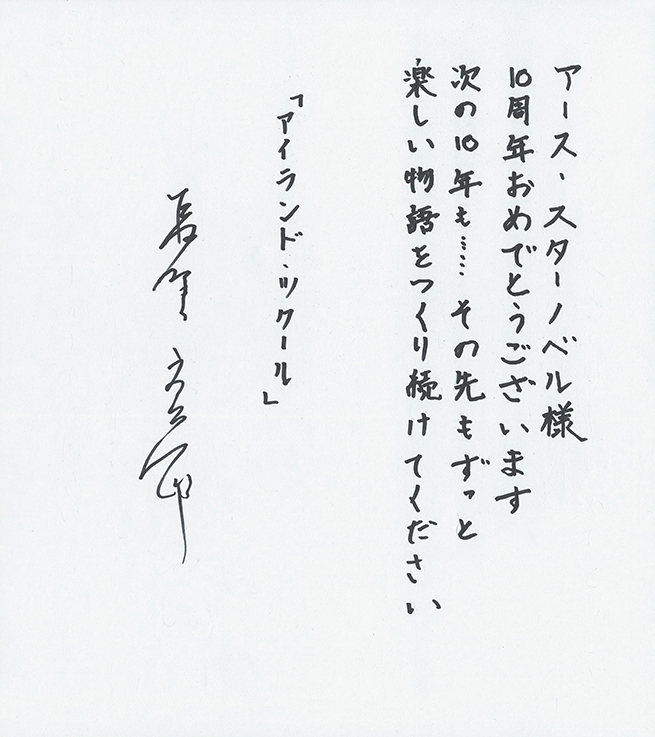 アース・スターノベル様
10周年おめでとうございます
次の10年も……その先もずっと
楽しい物語をつくり続けてください
「アイランド・ツクール」